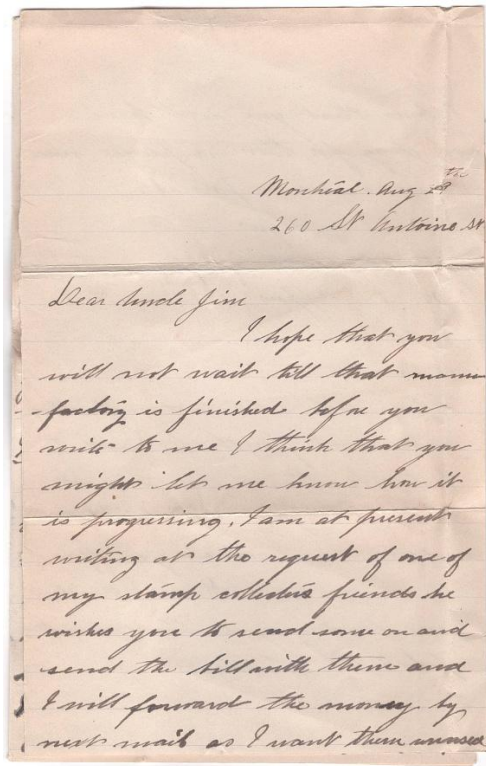 Montréal. Aug 28th
260 St Antoine St
Dear Uncle Jim
I hope that you
will not wait till that manu
factory is finished before you
write to me I think that you
might let me know how it
is progressing. I am at present
writing at the request of one of
my stamp collectors friends he
wishes you to send some on and
send the bill with them and
I will forward the money by
next mail as I want them unused